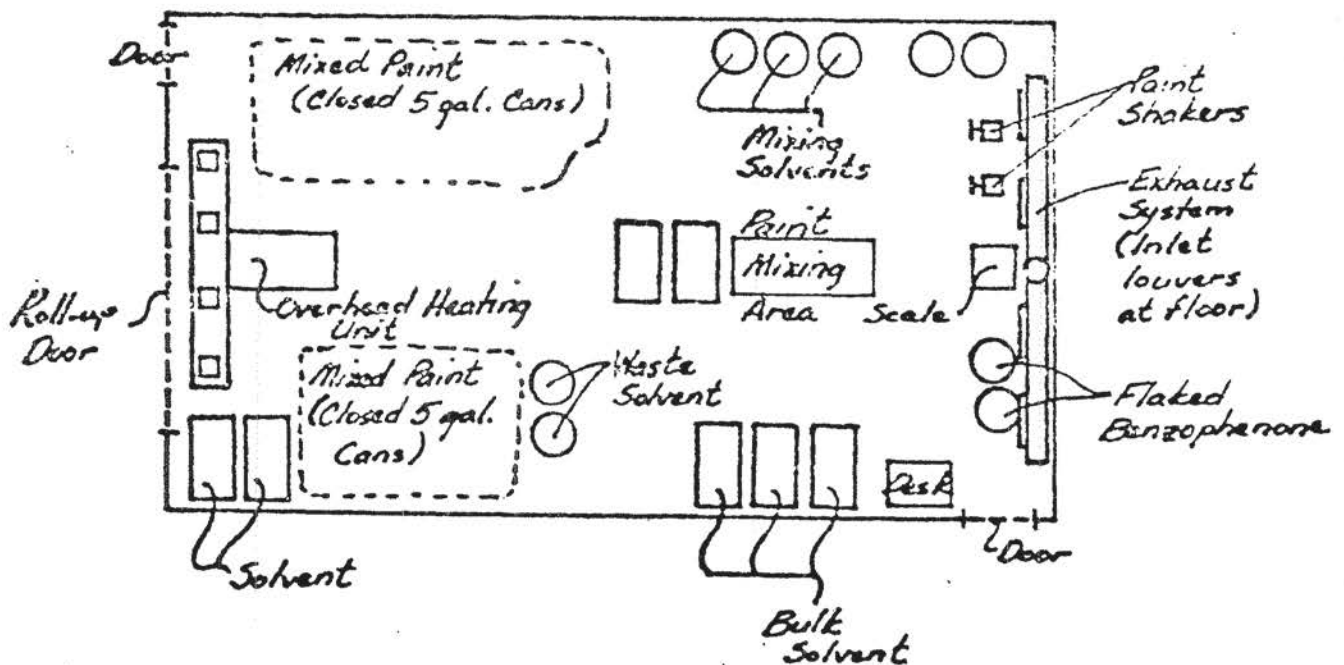 Door
Mixed Paint
(Closed 5 gal. Cans)
Mixing
Solvents
Paint
Shakers
Exhaust
System
(Inlet
louvers
at floor)
Paint
Mixing
Area
Scale
Roll-up
Door
Overhead Heating
Unit
Mixed Paint
(Closed 5 gal.
Cans)
Waste
Solvent
Flaked
Benzophenone
Desk
Door
Solvent
Bulk
Solvent